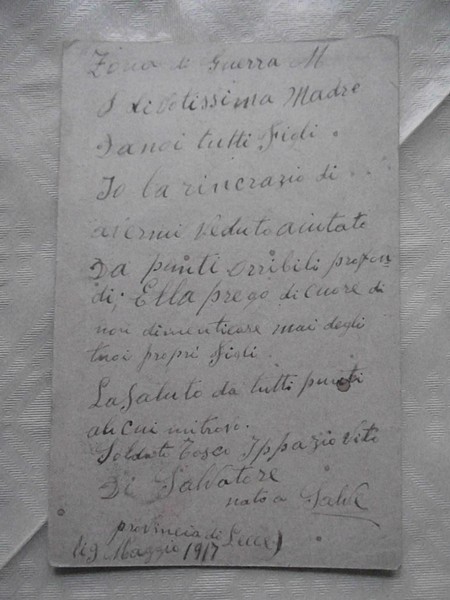 Zona di Guerra M
Divotissima Madre
Da noi tutti Figli.
Io la rincrazio di
avermi veduto aiutato
Da punti orribili profon
di; Ella prego di cuore di
non dimenticare mai degli
tuoi propri Figli.
La Saluto da tutti punti
di cui mi trovo.
Soldato Tosco Ippazio Vito
Di Salvatore
nato a Salve
provincia di Lecce
li 9 Maggio 1917